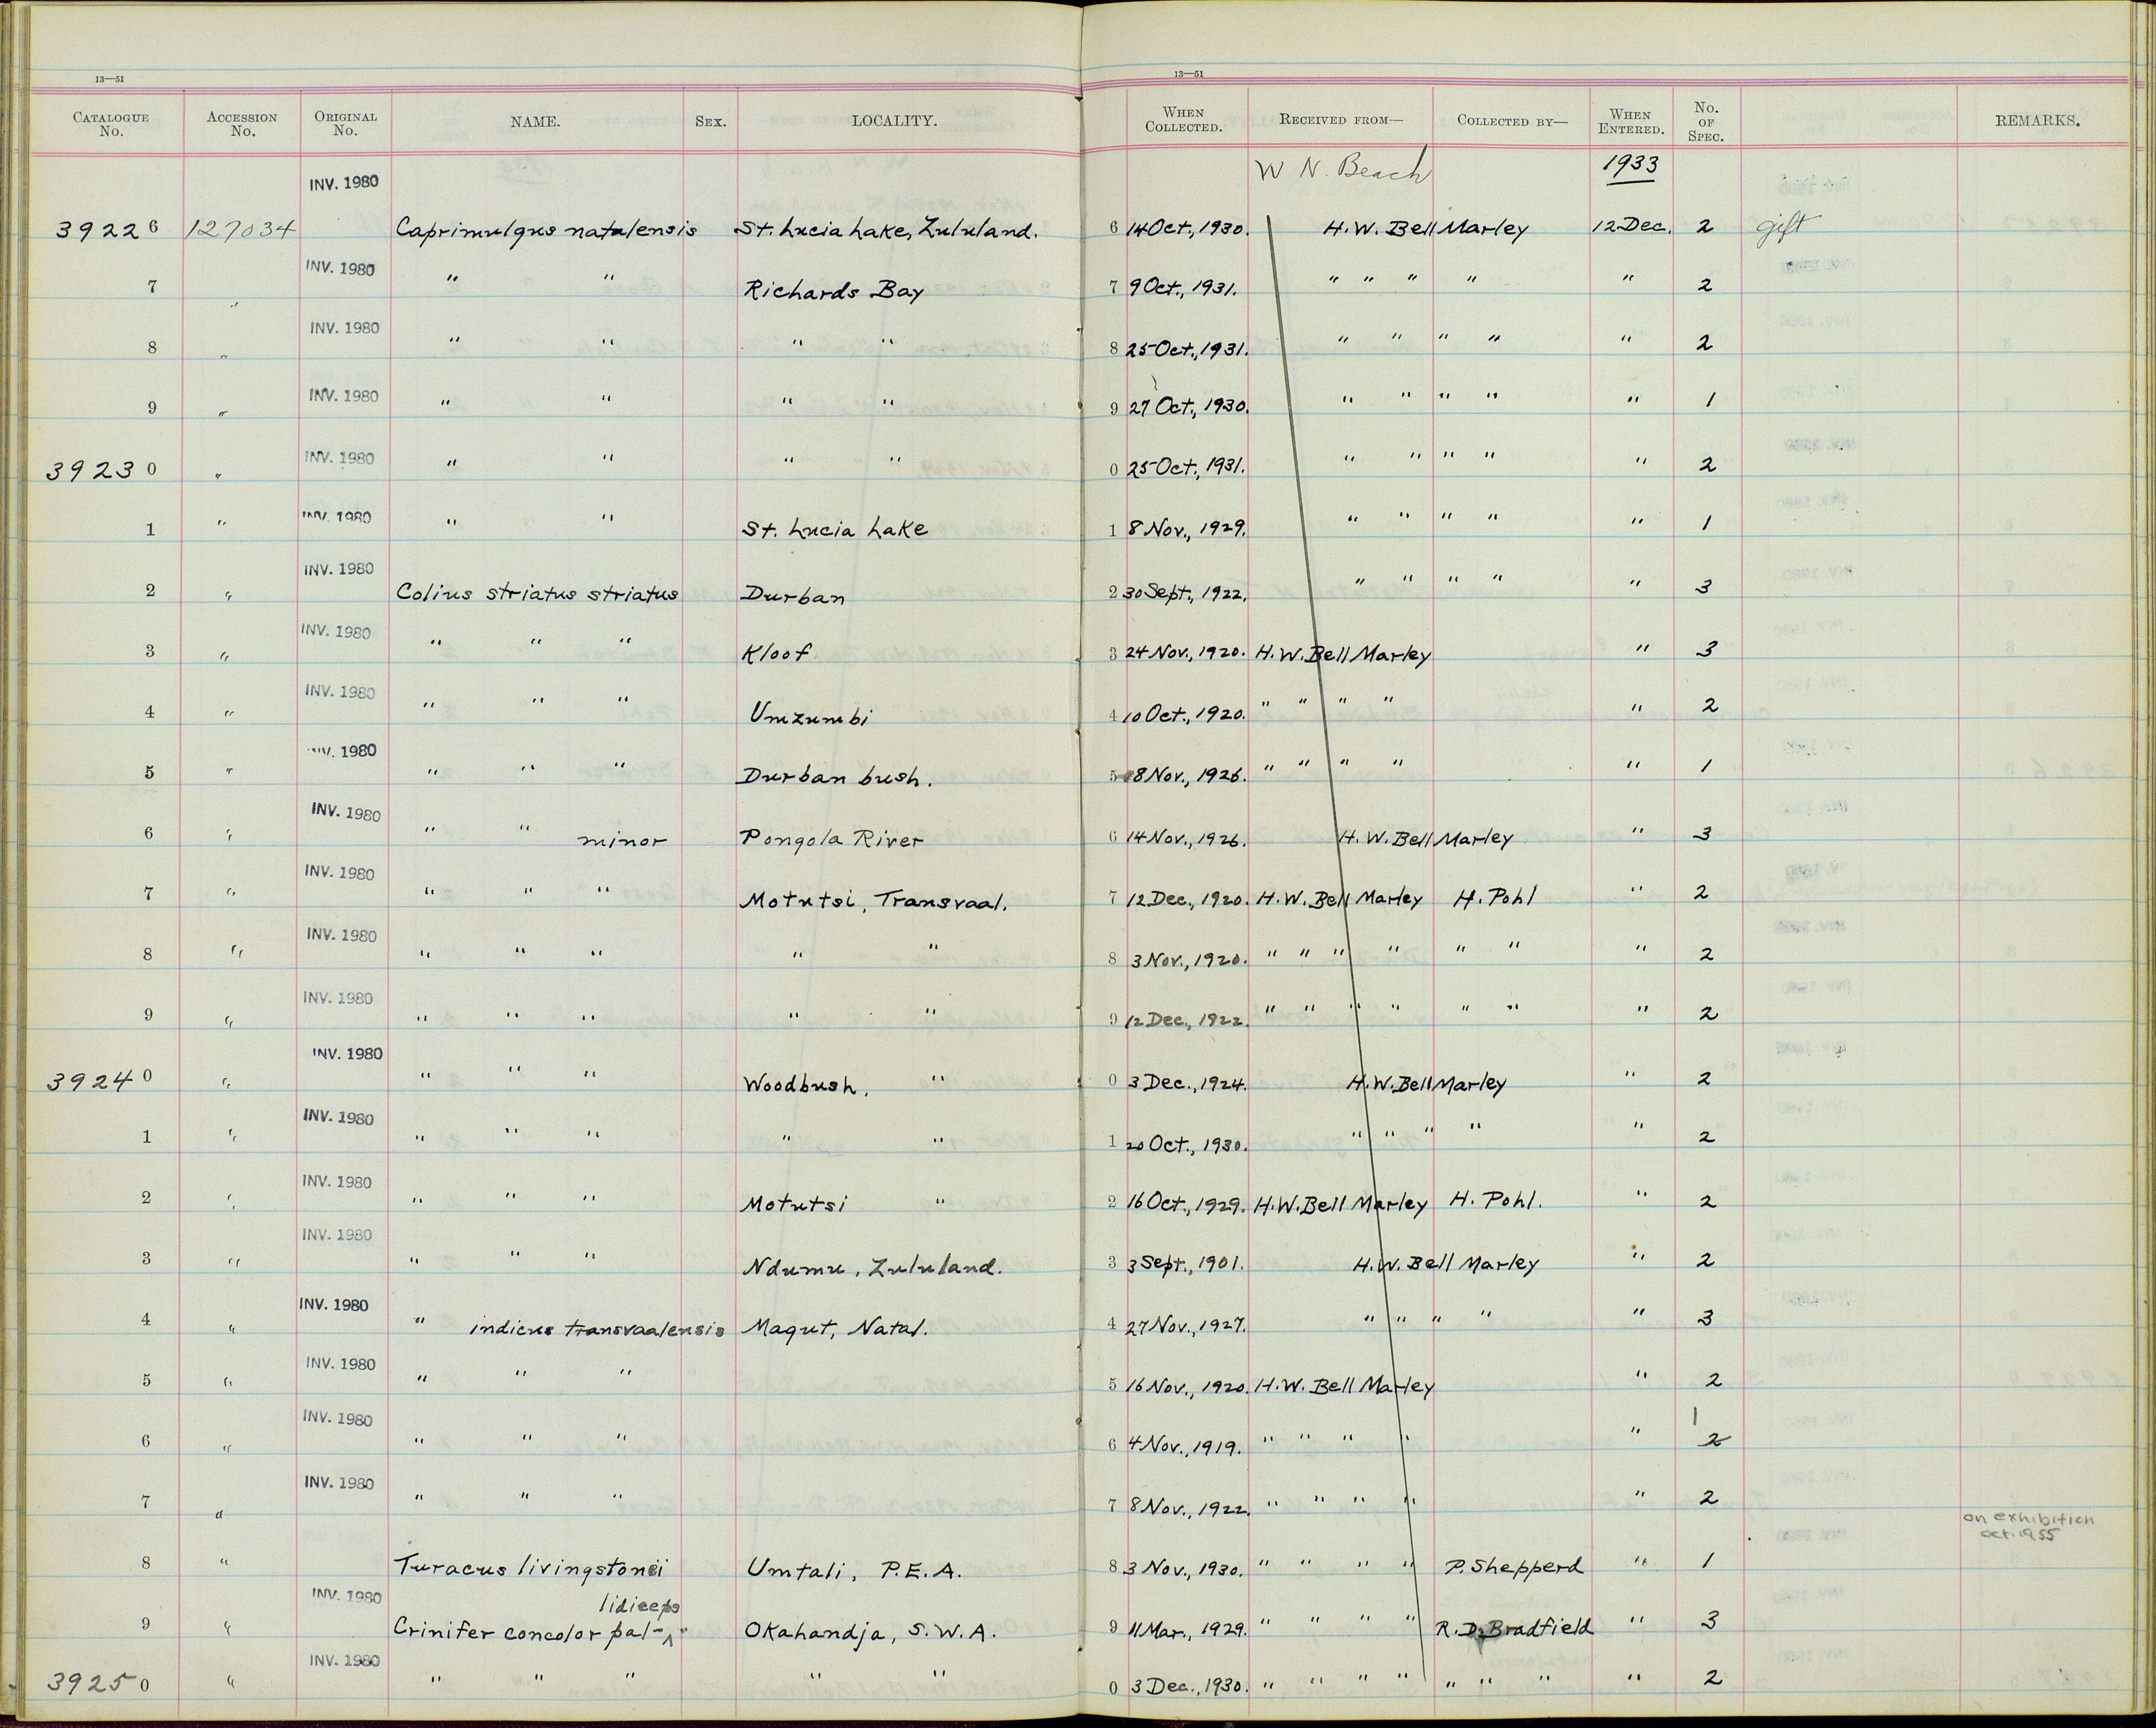 13—51 13—51
CATALOGUE No. ACCESSION No. ORIGINAL No. NAME. SEX. LOCALITY. WHEN COLLECTED. RECEIVED FROM— COLLECTED BY— WHEN ENTERED. No. OF SPEC. REMARKS.
INV. 1980 W N. Beach 1933
39226 127034 Caprimulgus natalensis St. Lucia Lake, Zululand. 6 14 Oct., 1930. H. W. Bell Marley 12 Dec. 2 gift
INV. 1980
7 " " " Richards Bay 7 9 Oct., 1931. " " " " " 2
INV. 1980
8 " " " " " 8 25 Oct., 1931. " " " " " 2
INV. 1980
9 " " " " " 9 27 Oct., 1930. " " " " " 1
INV. 1980
39230 " " " " " 0 25 Oct., 1931. " " " " " 2
INV. 1980
1 " " " St. Lucia Lake 1 8 Nov., 1929. " " " " " 1
INV. 1980
2 " Colius striatus striatus Durban 2 30 Sept., 1922. " " " " " 3
INV. 1980
3 " " " " Kloof 3 24 Nov., 1920. H. W. Bell Marley " 3
INV. 1980
4 " " " " Umzumbi 4 10 Oct., 1920. " " " " " 2
INV. 1980
5 " " " " Durban bush. 5 8 Nov., 1926. " " " " " 1
INV. 1980
6 " " " minor Pongola River 6 14 Nov., 1926. H. W. Bell Marley " 3
INV. 1980
7 " " " " Motutsi, Transvaal. 7 12 Dec., 1920. H. W. Bell Marley H. Pohl " 2
INV. 1980
8 " " " " " " 8 3 Nov., 1920. " " " " " " " 2
INV. 1980
9 " " " " " " 9 12 Dec., 1922. " " " " " " " 2
INV. 1980
39240 " " " " Woodbush, " 0 3 Dec., 1924. H. W. Bell Marley " 2
INV. 1980
1 " " " " " " 1 20 Oct., 1930. " " " " " 2
INV. 1980
2 " " " " Motutsi " 2 16 Oct., 1929. H. W. Bell Marley H. Pohl. " 2
INV. 1980
3 " " " " Ndumu, Zululand. 3 3 Sept., 1901. H. W. Bell Marley " 2
INV. 1980
4 " " indicus transvaalensis Magut, Natal. 4 27 Nov., 1927. " " " " " 3
INV. 1980
5 " " " " 5 16 Nov., 1920. H. W. Bell Marley " 2
INV. 1980 1
6 " " " " 6 4 Nov., 1919. " " " " " 2
INV. 1980
7 " " " " 7 8 Nov., 1922. " " " " " 2
on exhibition
oct. 1955
8 " Turacus livingstonii Umtali, P.E.A. 8 3 Nov., 1930. " " " " P. Shepperd " 1
INV. 1980 lidiceps
9 " Crinifer concolor pal-^" Okahandja, S.W.A. 9 11 Mar., 1929. " " " " R. D. Bradfield " 3
INV. 1980
39250 " " " " " " 0 3 Dec., 1930. " " " " " " " " 2